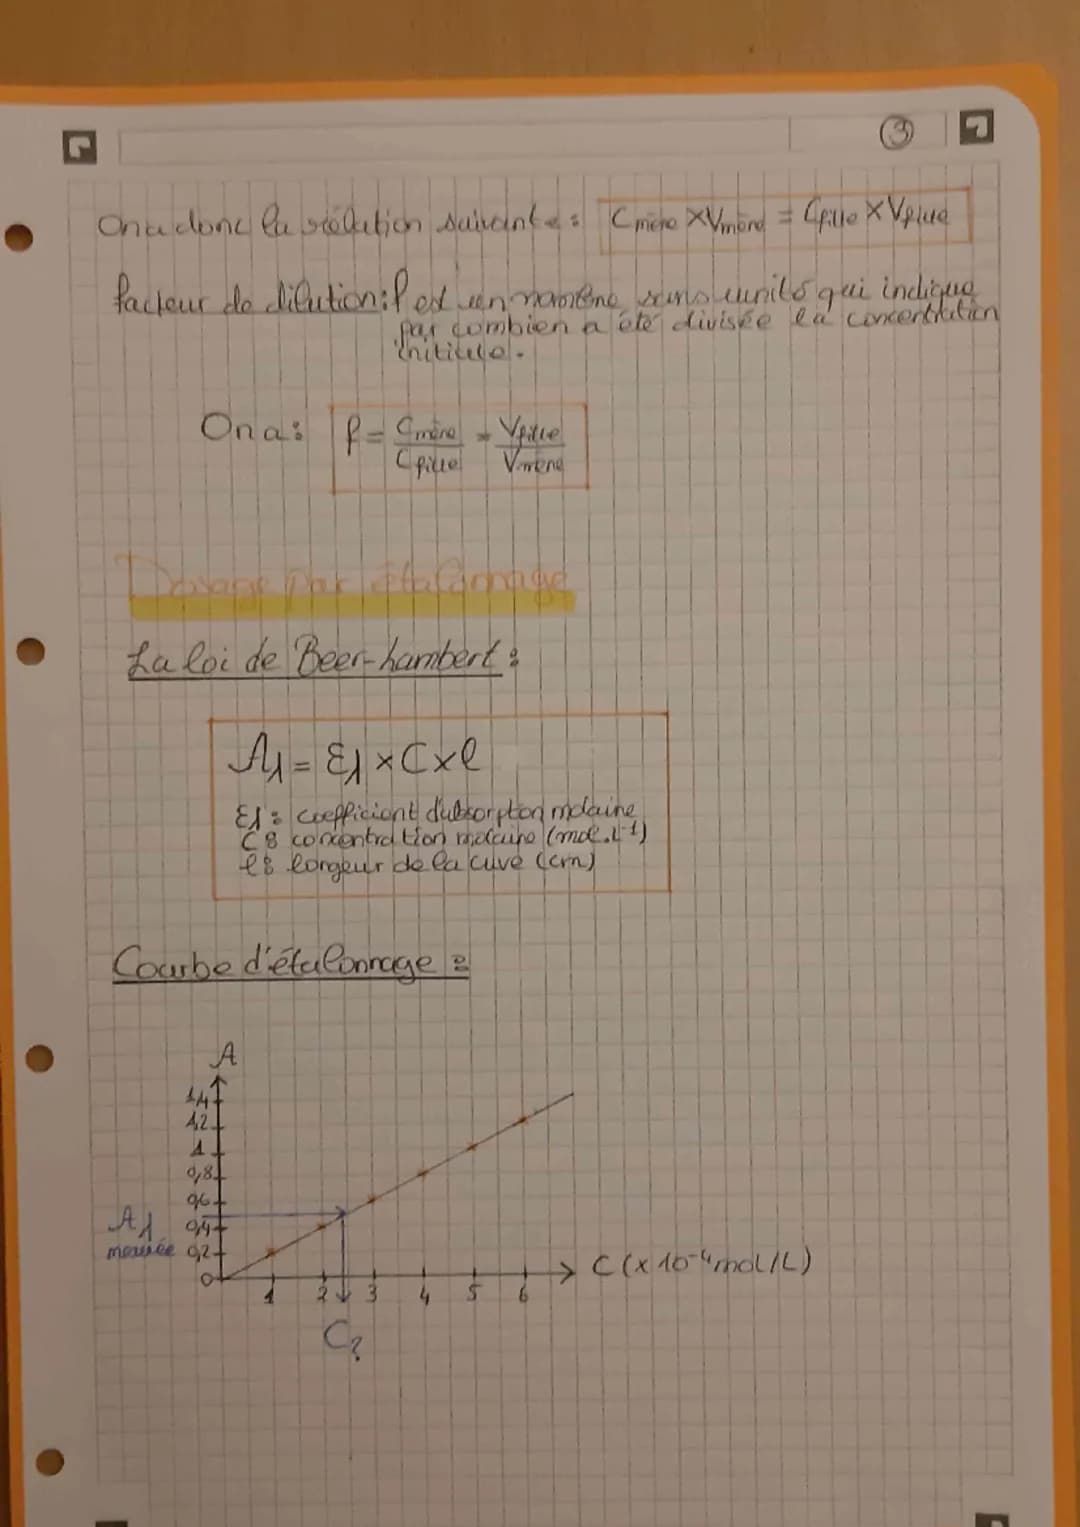 ③
On a donc la relation suivante : Cmère × Vmère = Cfille × Vfille
facteur de dilution : f est un nombre sans unité qui indique
par combien a été divisée la concentration
initiale.
On a : f = Cmère / Cfille = Vfille / Vmère
Dosage par étalonnage
La loi de Beer-Lambert :
Aλ = Ελ × C × l
Ελ : coefficient d'absorption molaire
C : concentration molaire (mol.L-1)
l : longeur de la cuve (cm)
Courbe d'étalonnage :
A
1,4
1,2
1
0,8
0,6
Aλ 0,4
mesurée 0,2
0
1 2 3 4 5 6
C (× 10⁻⁴ mol/L)
C?